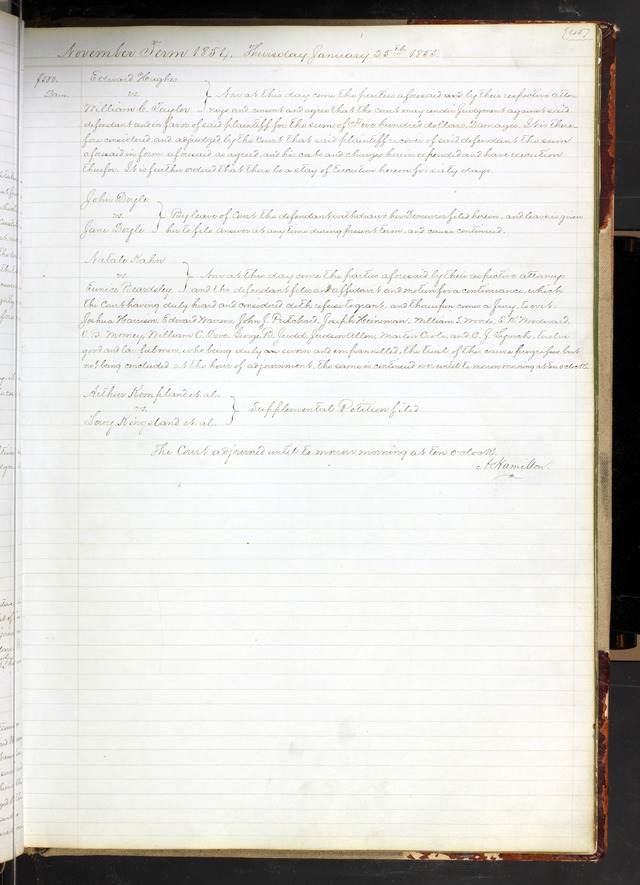 November Term 1854. Thursday January 25th 1855.
$500. Edward Hughes
Dam. vs. } Now at this day come the parties aforesaid and by their respective attor-
William C. Taylor neys and consent and agree that the Court may render Judgment against said
defendant and in favor of said plaintiff for the sum of Five hundred dollars Damages. It is there-
fore considered and adjudged by the Court that said plaintiff recover of said defendant the sum
aforesaid in form aforesaid as agreed, and his costs and charges herein expended and have execution
therefor. It is further ordered that there be a stay of Execution hereon for sixty days.
John Doyle
vs. } By leave of Court the defendant withdraws her Demurrer filed herein, and leave is given
Jane Doyle her to file answer at any time during present term, and cause continued.
Natale Kahn
vs } Now at this day come the parties aforesaid by their respective attorneys
Eunice Beardsley and the defendant files an affidavit and motion for a continuance, which
the Court having duly heard and considered doth refuse to grant, and thereupon comes a jury to wit:
Joshua Harrison, Edward Warrene, John J. Pritchard, Joseph Heineman, William S. Woods, Woodward
C. B. Mooney, William C. Dove, George B. Judson Allen, Martin and C. J. Lynch, twelve
good and lawful men, who being duly sworn and empannelled, the trial of this cause progresses, but
not being concluded at the hour of adjournment, the same is continued over until to morrow morning at ten o'clock.
Arthur Kempland et. al.
vs. } Supplemental Petition filed.
Kingsland et. al.
The Court adjourned until to morrow morning at ten o'clock.
A. Hamilton.